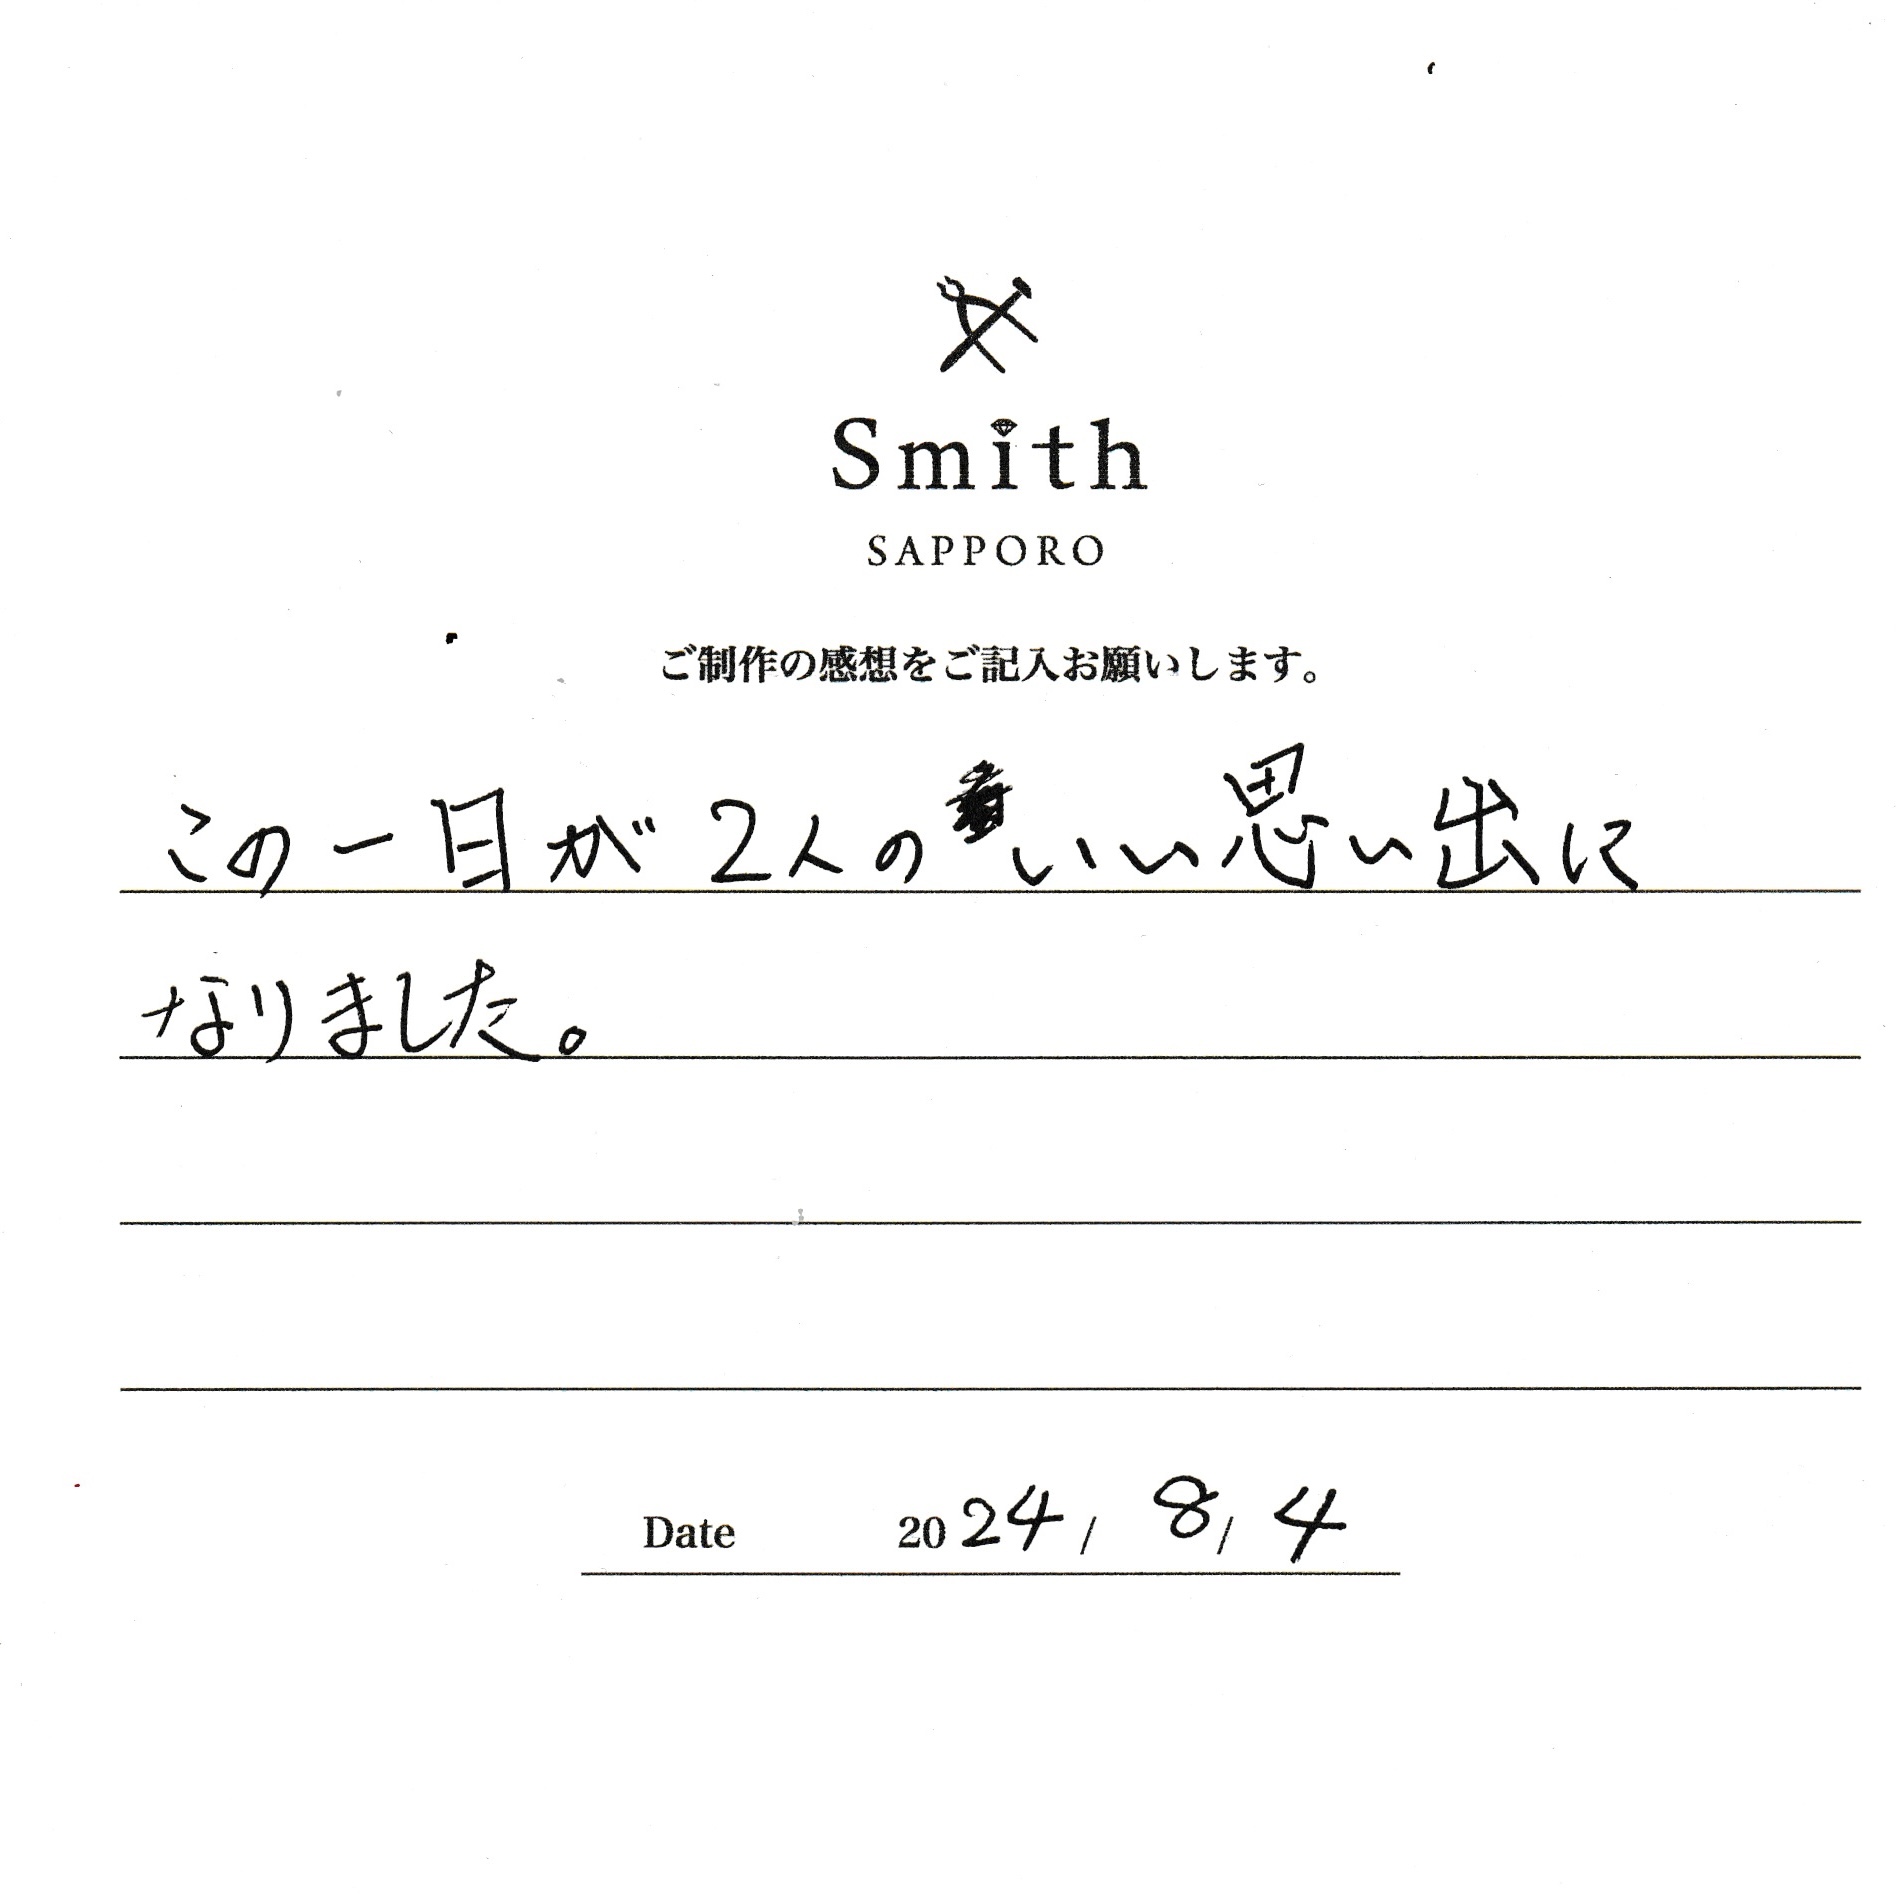 Smith
SAPPORO
ご制作の感想をご記入お願いします。
この一日が2人のいい思い出に
なりました。
Date 2024/ 8/ 4